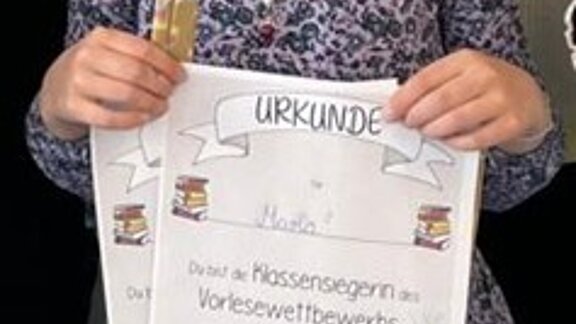 URKUNDE
Du bist die Klassensiegerin des
Vorlesewettbewerbs
Du b